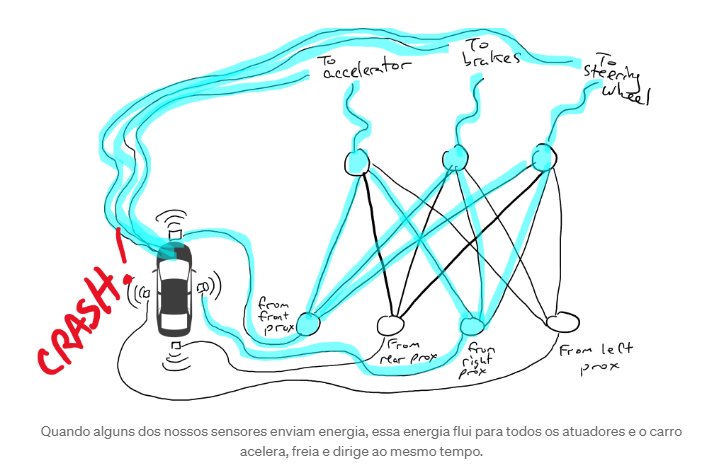 To
accelerator
To
brakes
To
steering
wheel
CRASH!
from
front
prox
From
rear prox
from
right
prox
From left
prox
Quando alguns dos nossos sensores enviam energia, essa energia flui para todos os atuadores e o carro
acelera, freia e dirige ao mesmo tempo.